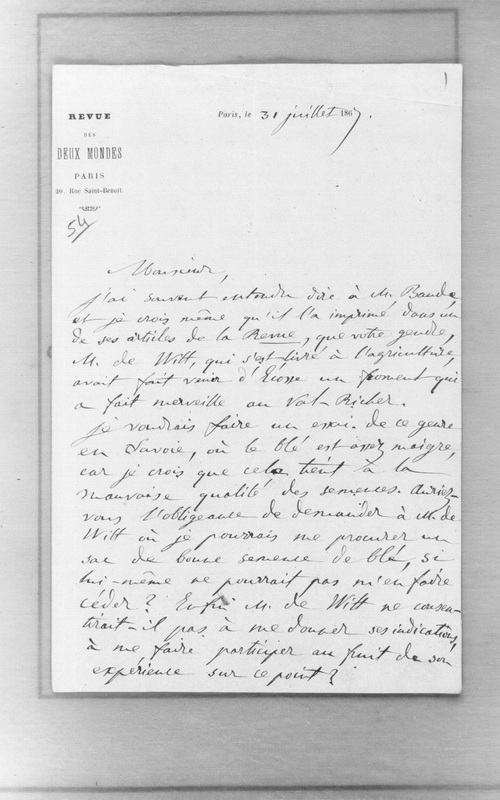 1
REVUE
DES
DEUX MONDES
PARIS
20, Rue Saint-Benoit.
Paris, le 31 juillet 1867.
54
Monsieur,
j'ai souvent entendu dire à M. Baude,
et je crois même qu'il l'a imprimé dans un
de ses articles de la Revue, que votre gendre,
M. de Witt, qui s'est livré à l'agriculture,
avait fait venir d'Ecosse un froment qui
a fait merveille au Val-Richer.
je voudrais faire un essai de ce genre
en Savoie, où le blé est assez maigre,
car je crois que cela tient à la
mauvaise qualité des semences. auriez-
vous l'obligeance de demander à M. de
Witt où je pourrais me procurer un
sac de bonne semence de blé, si
lui-même ne pourrait pas m'en faire
céder? Enfin M. de Witt ne consen-
tirait-il pas à me donner ses indications,
à me faire participer au fruit de son
expérience sur ce point?